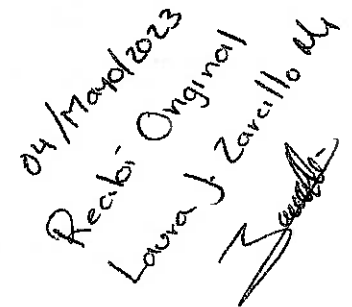 04/Mayo/2023
Recibí Original
Laura J. Zarcillo